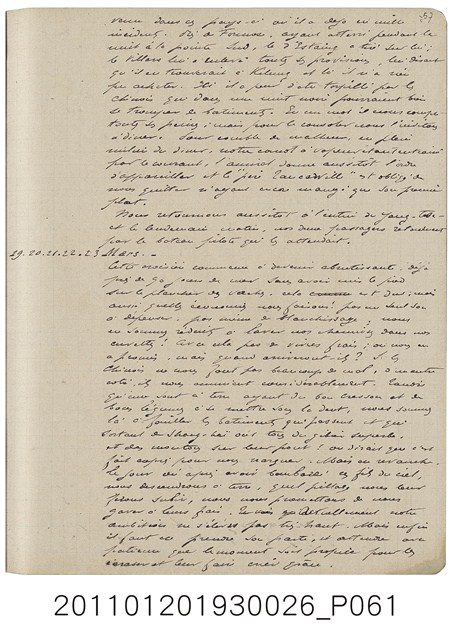 57
venu dans ce pays-ci où il a déjà eu mille
incidents. Près de Formose, ayant atterri pendant la
nuit à la pointe Sud, le d'Estaing a tiré sur lui ;
le Villars lui a enlevé toutes ses provisions, lui disant
qu'il en trouverait à Kelung et là il n'a rien
pu acheter. Ici il a peur d'être torpillé par les
Chinois qui dans une nuit noire pourraient bien
se tromper de bâtiment. En un mot il nous conte
toutes ses peines ; mais pour le consoler nous l'invitons
à dîner. Pour comble de malheur, en plein
milieu du dîner, notre canot à vapeur étant entraîné
par le courant, l'amiral donne aussitôt l'ordre
d'appareiller et le "père" est obligé de
nous quitter n'ayant encore mangé que son premier
plat.
Nous retournons aussitôt à l'entrée du Yang-Tse-
et le lendemain matin, nos deux passagers retournent
par le bateau pilote qui les attendait.
19. 20. 21. 22. 23 Mars. -
Cette croisière commence à devenir abrutissante. déjà
près de 90 jours de mer sans avoir mis le pied
sur le plancher des vaches, cela est dur ; mais
aussi quelles économies nous faisons ! pas un seul sou
à dépenser, pas même de blanchissage ; nous
en sommes réduits à laver nos chemises dans nos
cuvettes ! Avec cela pas de vivres frais ; on nous en
a promis, mais quand arriveront-ils ? Si les
Chinois ne nous font pas beaucoup de mal, d'un autre
côté, ils nous ennuient considérablement. Tandis
qu'eux sont à terre ayant du bon cresson et de
bons légumes à se mettre sous la dent, nous sommes
là à fouiller les bâtiments qui passent et qui
sortant de Shang-haï ont tous du gibier superbe
et des moutons sur leur pont ! on dirait que c'est
fait exprès pour nous narguer. Mais en revanche
le jour où après avoir bombardé ces fils du ciel,
nous descendrons à terre, quel pillage nous leur
ferons subir, nous nous promettons de nous
gaver à leurs frais. Actuellement notre
ambition ne s'élève pas plus haut. Mais enfin
il faut en prendre son parti, et attendre avec
patience que le moment soit propice pour les
écraser et leur faire crier grâce.
201101201930026_P061